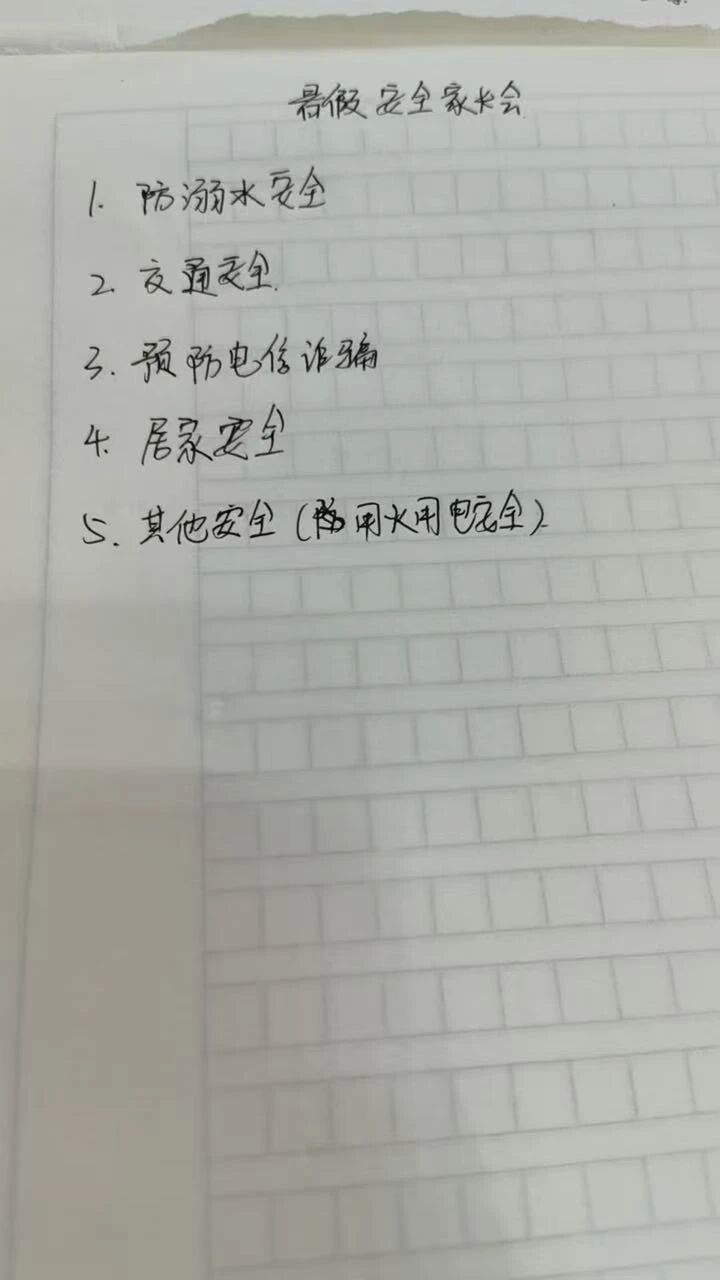 暑假安全家长会
1. 防溺水安全
2. 交通安全.
3. 预防电信诈骗
4. 居家安全
5. 其他安全(防用火用电安全)